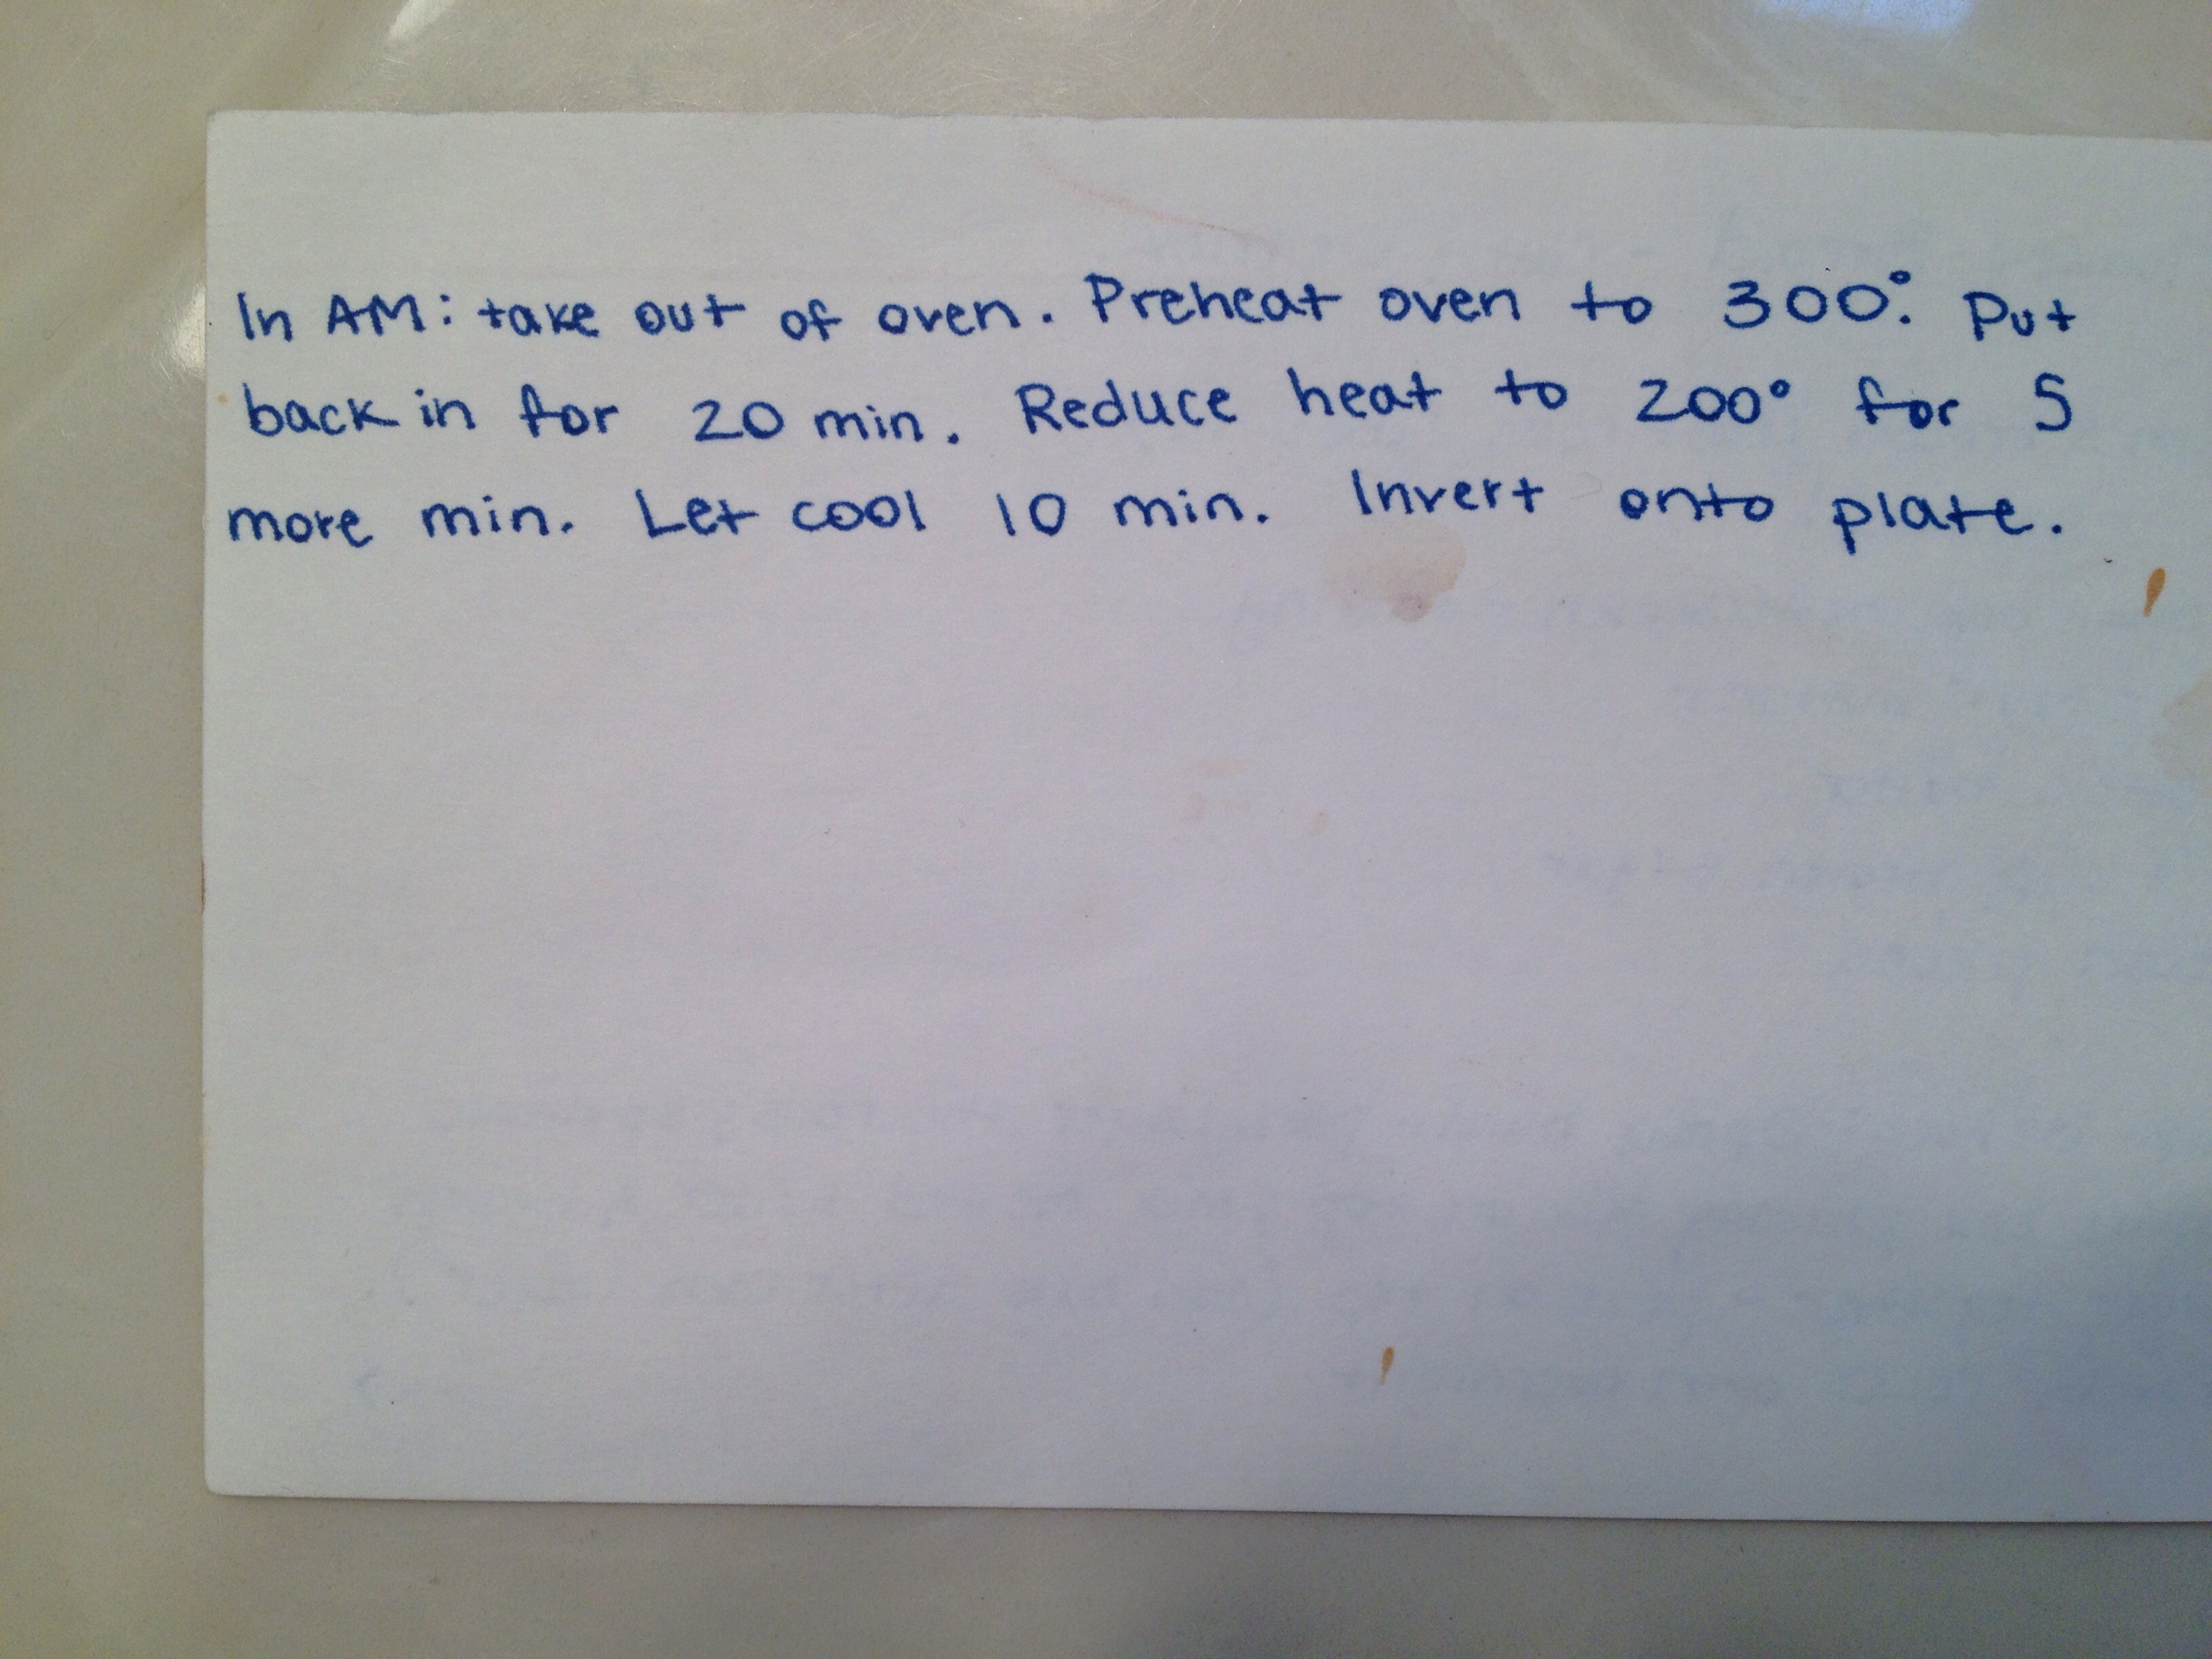 In AM: take out of oven. Preheat oven to 300°. Put
back in for 20 min. Reduce heat to 200° for 5
more min. Let cool 10 min. Invert onto plate.